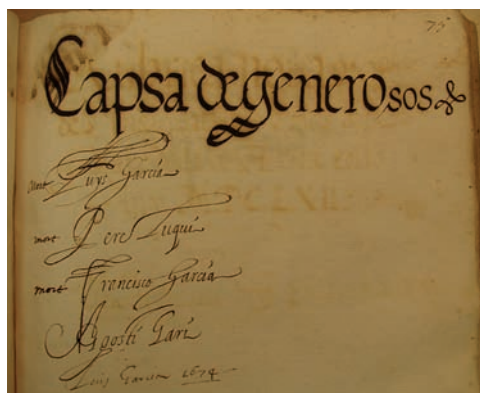 75
Capsa de generosos
mort Luys Garcia
mort Pere Tuqui
mort Francisco Garcia
Agosti Gari
Luis Garcia 1674